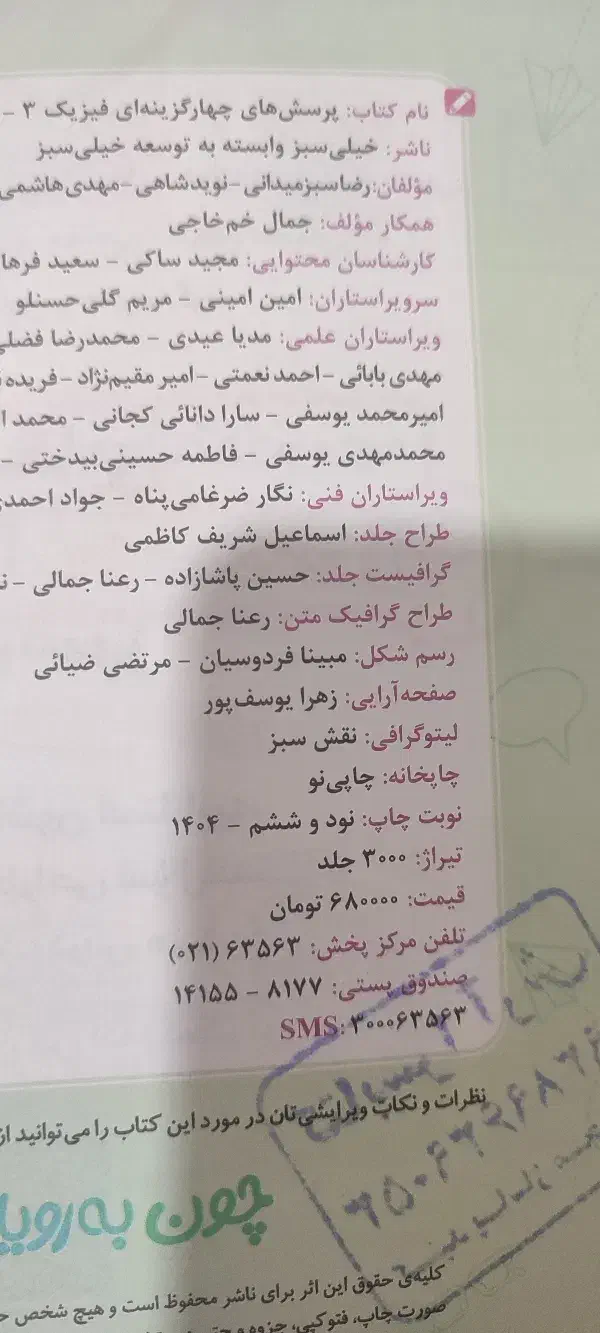 نام کتاب: پرسش‌های چهارگزینه‌ای فیزیک ۳ –
ناشر: خیلی‌سبز وابسته به توسعه خیلی‌سبز
مؤلفان:رضاسبزمیدانی-نویدشاهی-مهدی‌هاشمی
همکار مؤلف: جمال خم‌خاجی
کارشناسان محتوایی: مجید ساکی – سعید فرها
سرویراستاران: امین امینی – مریم گلی‌حسنلو
ویراستاران علمی: مدیا عیدی – محمدرضا فضلی
مهدی بابائی -احمد نعمتی -امیر مقیم‌نژاد -فریده
امیرمحمد یوسفی – سارا دانائی کجانی – محمد ا
محمدمهدی یوسفی – فاطمه حسینی‌بیدختی –
ویراستاران فنی: نگار ضرغامی‌پناه – جواد احمدی
طراح جلد: اسماعیل شریف کاظمی
گرافیست جلد: حسین پاشازاده – رعنا جمالی –
طراح گرافیک متن: رعنا جمالی
رسم شکل: مبینا فردوسیان – مرتضی ضیائی
صفحه‌آرایی: زهرا یوسف‌پور
لیتوگرافی: نقش سبز
چاپخانه: چاپی‌نو
نوبت چاپ: نود و ششم – ۱۴۰۴
تیراژ: ۳۰۰۰ جلد
قیمت: ۶۸۰۰۰۰ تومان
تلفن مرکز پخش: ۶۳۵۶۳ (۰۲۱)
صندوق پستی: ۸۱۷۷ – ۱۴۱۵۵
SMS: ۳۰۰۰۶۳۵۶۳
نظرات و نکات ویرایشی‌تان در مورد این کتاب را می‌توانید از
چون به رویا
کلیه‌ی حقوق این اثر برای ناشر محفوظ است و هیچ شخص
صورت چاپ، فتوکپی، جزوه و